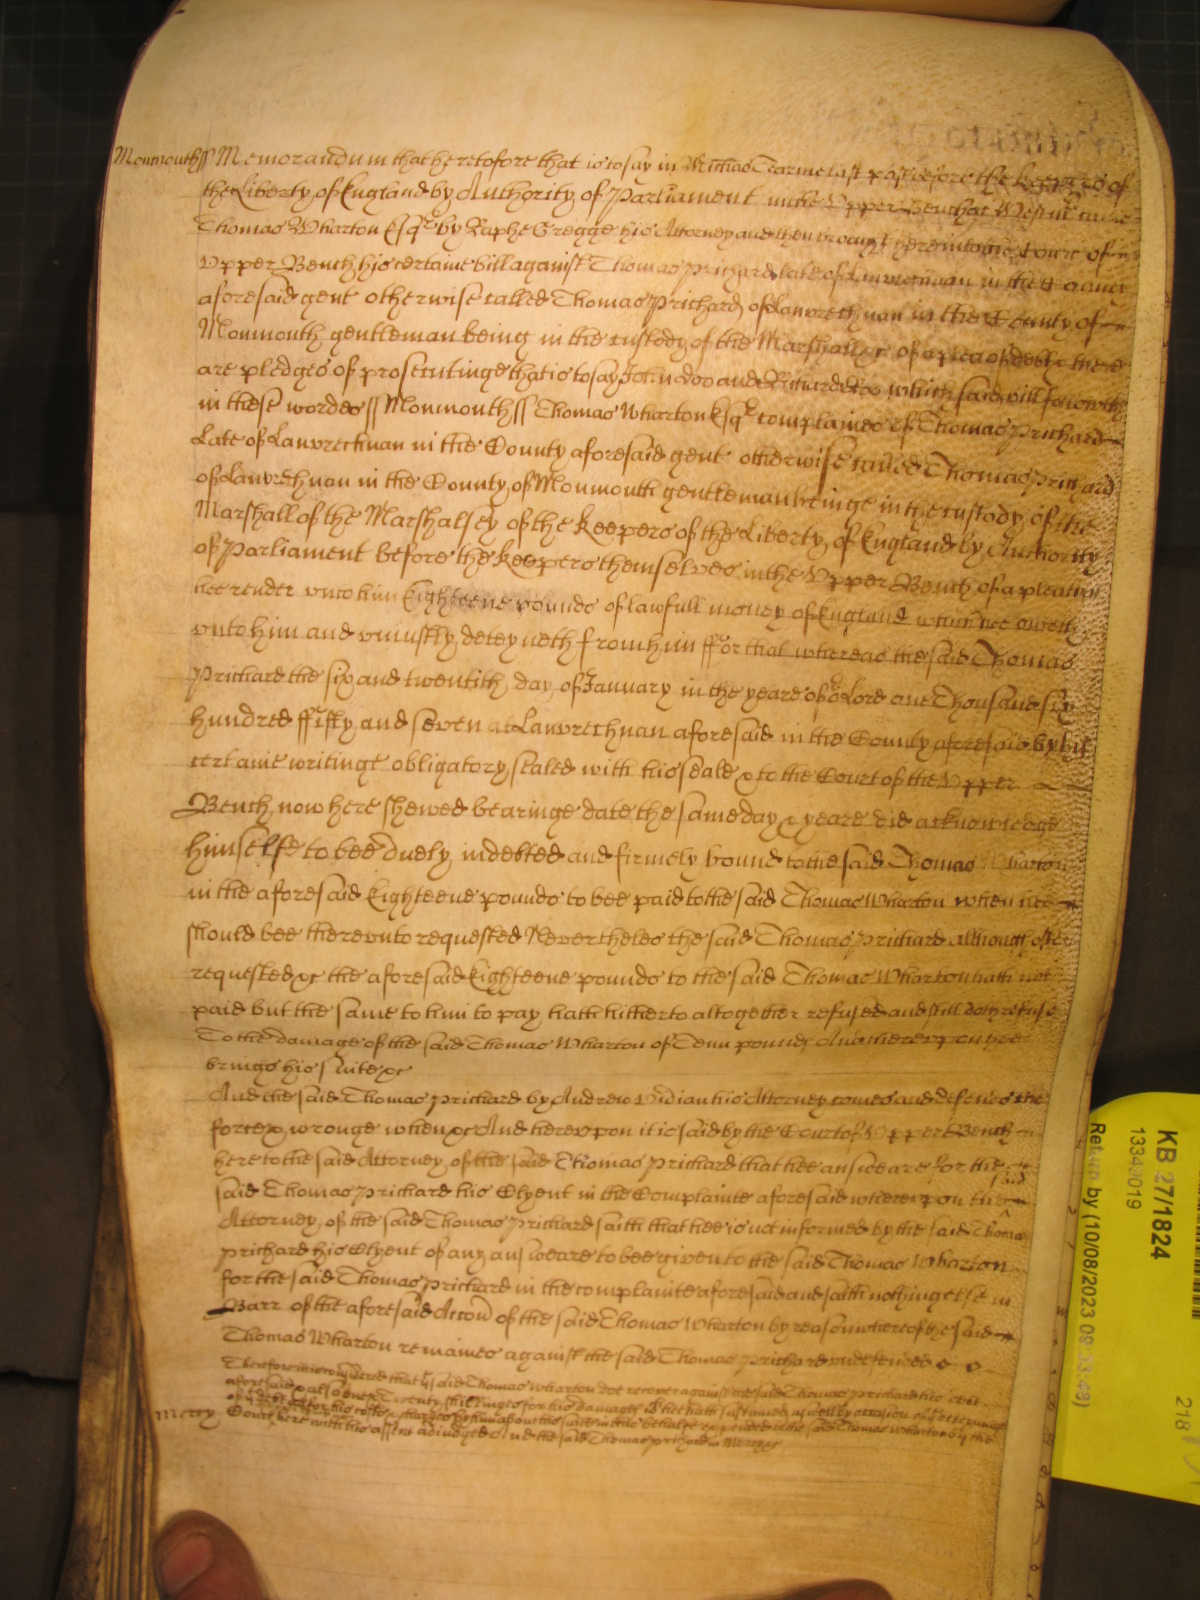 Monmouth ss Memorandum that heretofore that is to say in Michas Tearme last past before the keepers of
the Liberty of England by Authority of Parliament in the Upper Bench at Westmr came
Thomas Wharton Esqr by Raphe Gregge his Attorney and then brought here into the Court of
Upper Bench his certaine bill against Thomas Prichard late of Lanvrechnan in the County
aforesaid gent otherwise called Thomas Prichard of Lanvrechnan in the County of
Monmouth gentleman being in the custody of the Marshall &c of a plea of debt there
are pledges of prosecutinge that is to say John doo and Richard Roo which said bill followth
in these wordes ss Monmouth ss Thomas Wharton Esqr complaines of Thomas Prichard
Late of Lanvrechnan in the County aforesaid gent otherwise called Thomas Prichard
of Lanvrehnan in the County of Monmouth gentleman beinge in the custody of the
Marshall of the Marshalsey of the keepers of the Liberty of England by Authority
of Parliament before the keepers themselves in the Upper Bench of a plea that
hee render unto him Eighteene pounds of lawfull money of England which hee oweth
unto him and uniustly deteyneth from him ffor that whereas the said Thomas
Prichard the six and twentith day of January in the yeare of or Lord one Thousand six
hundred ffifty and seven at Lanvrechnan aforesaid in the County aforesaid by his
certaine writinge obligatory sealed with his seale & to the Court of the Upper
Bench now here shewed bearinge date the same day & yeare did acknowledge
himselfe to bee duely indebted and firmely bound to the said Thomas Wharton
in the aforesaid Eighteene pounds to bee paid to the said Thomas Wharton when hee
should bee thereunto requested Nevertheles the said Thomas Prichard although often
requested &c the aforesaid Eighteene pounds to the said Thomas Wharton hath not
paid but the same to him to pay hath hitherto altogether refused and still doth refuse
To the damage of the said Thomas Wharton of Tenn pounds And thereupon hee
brings his suite &c
And the said Thomas Prichard by Andrew Vidian his Attorney comes and defends the
force & wronge when &c And hereupon it is said by the Court of Upper Bench
here to the said Attorney of the said Thomas Prichard that hee answeare for the
said Thomas Prichard his Clyent in the Complainte aforesaid whereupon the said
Attorney of the said Thomas Prichard saith that hee is not informed by the said Thomas
Prichard his Clyent of any answeare to bee given to the said Thomas Wharton
for the said Thomas Prichard in the complainte aforesaid and saith nothinge else in
Barr of the aforesaid Accon of the said Thomas Wharton by reason whereof the said
Thomas Wharton remaines against the said Thomas Prichard undefended
Therefore it is considered that ye said Thomas Wharton doe recover against the said Thomas Prichard his debt
aforesaid & also Twenty shillings for his damages which hee hath sustained aswell by occasion of ye deteyninge
of ye debt as for his costs & charges by him about his suite in this behalfe expended to the said Thomas Wharton by the
Mercy Court here with his assent adiudged And the said Thomas Prichard in Mercy &c
KB 27/1824
13349019
Return by (10/08/2023 08:33:48)
218